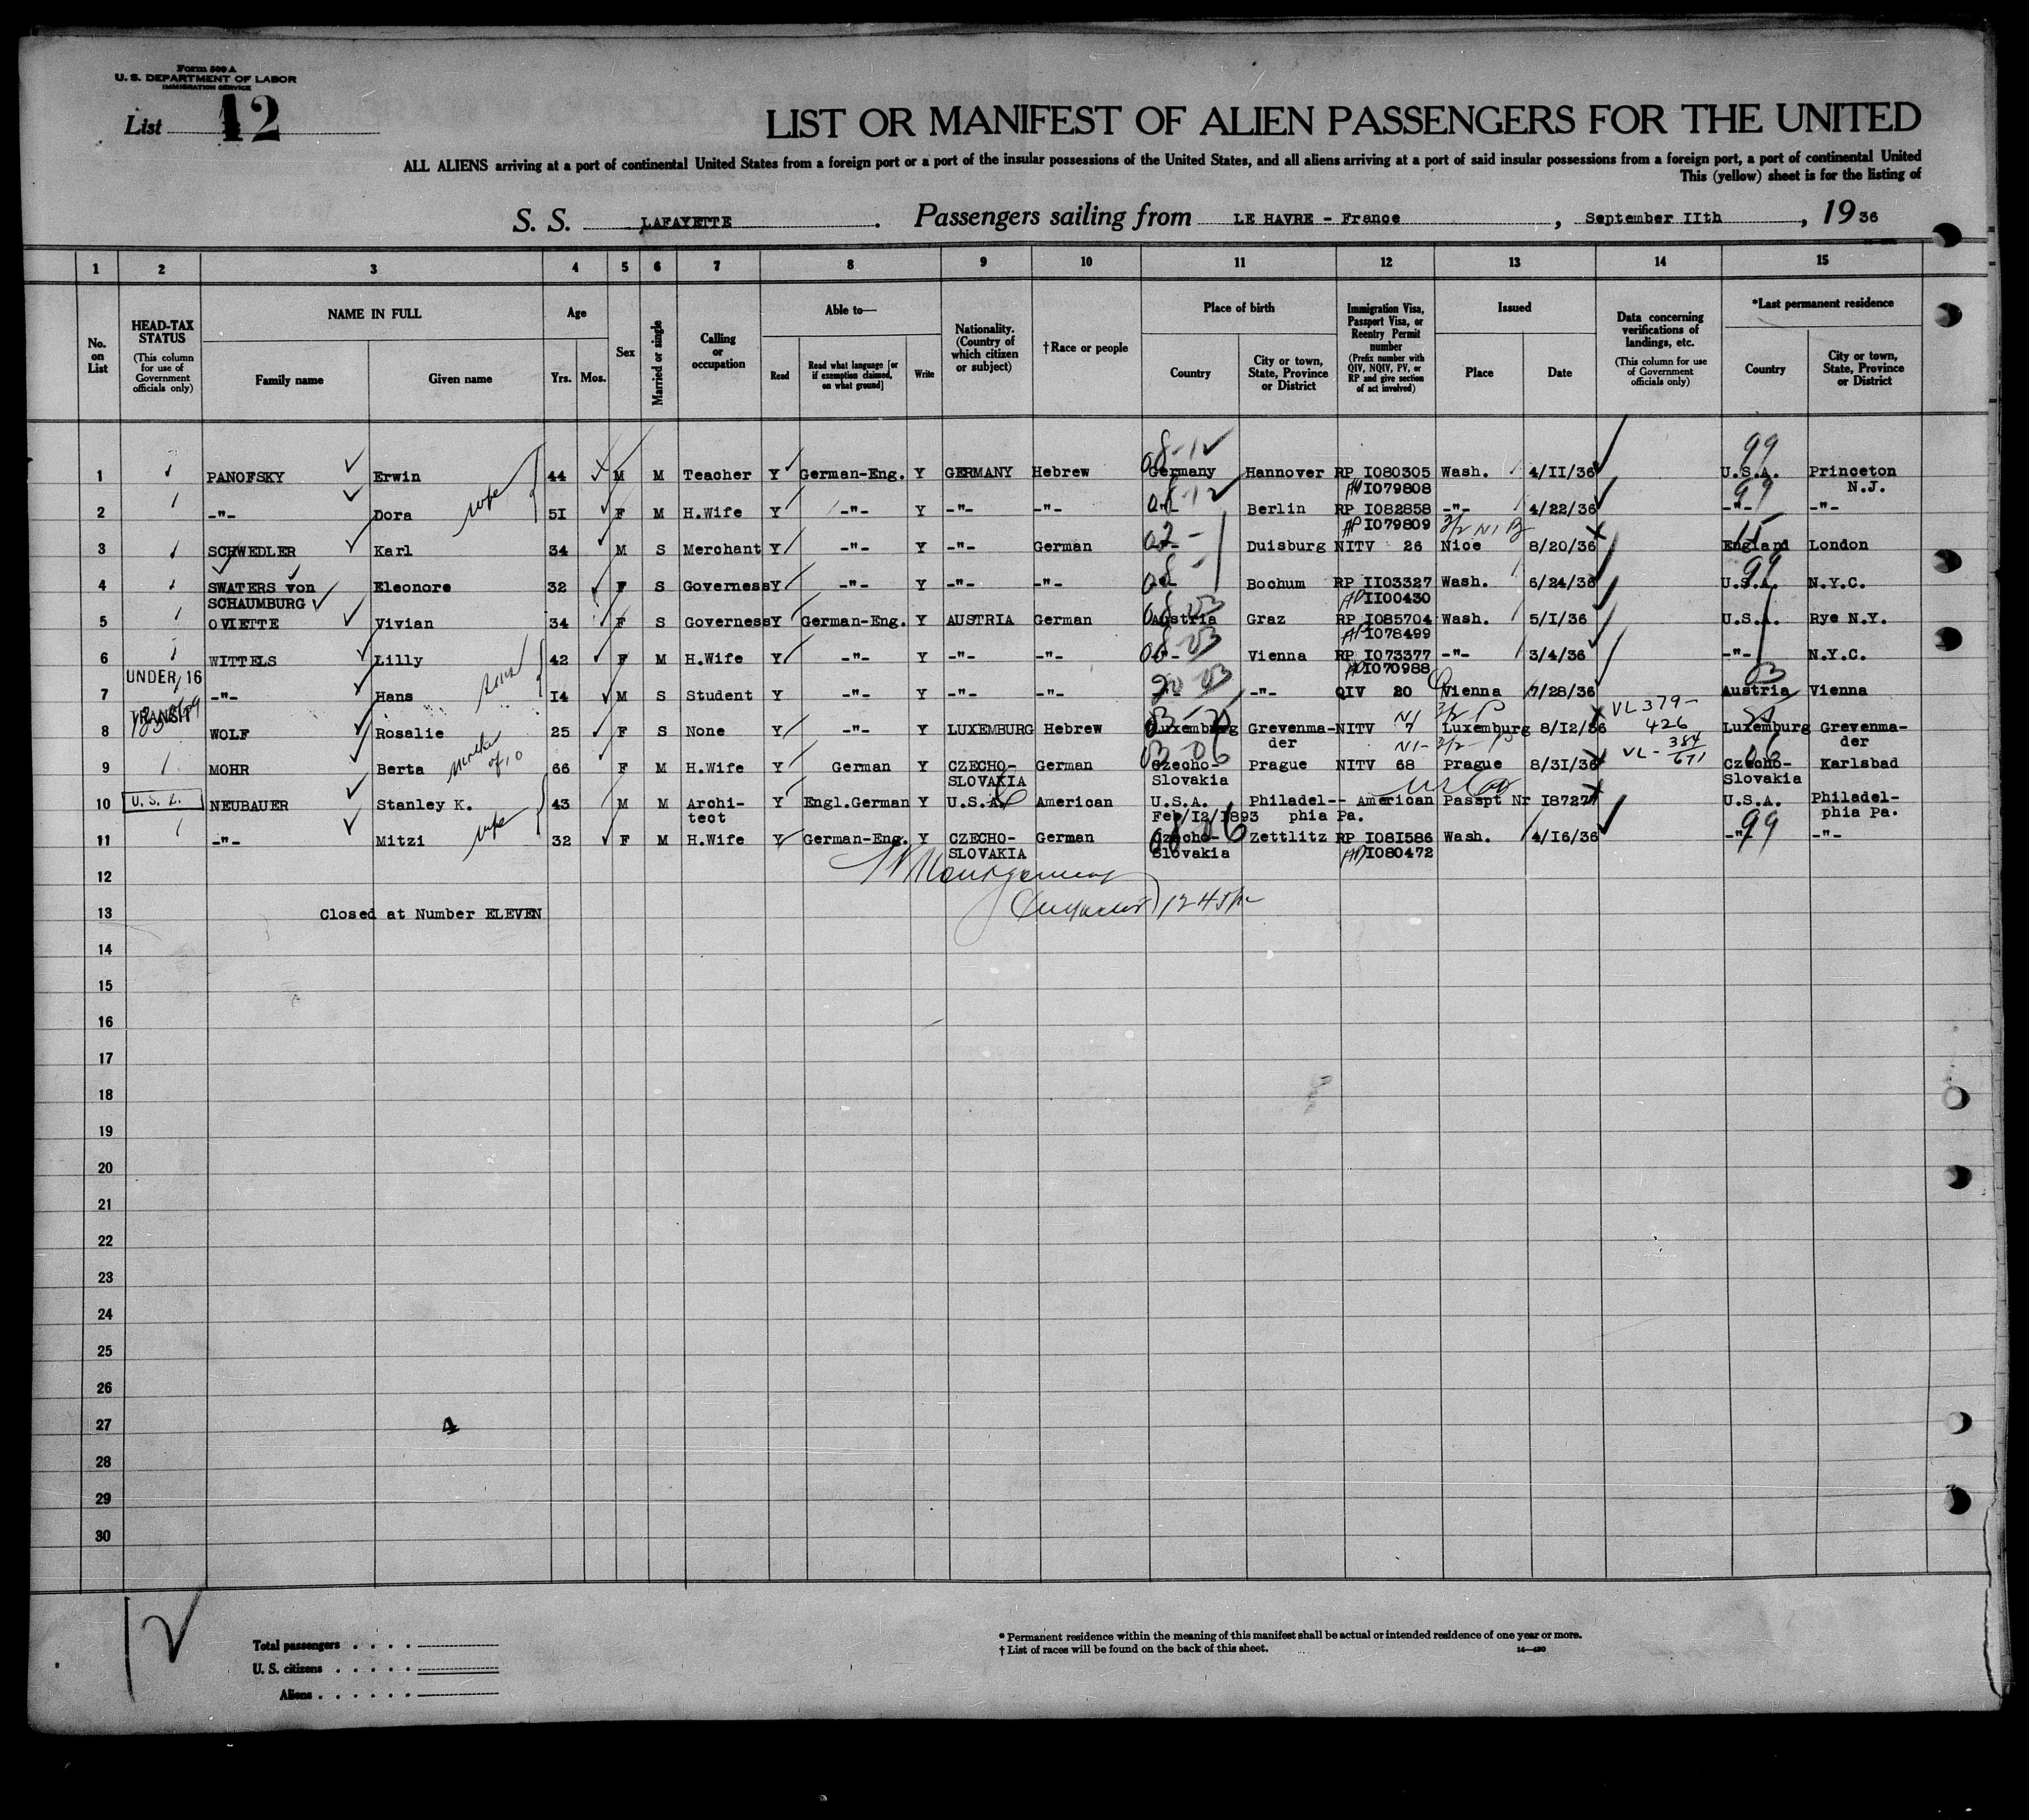 Form 500 A
U. S. DEPARTMENT OF LABOR
IMMIGRATION SERVICE
List 12
LIST OR MANIFEST OF ALIEN PASSENGERS FOR THE UNITED
ALL ALIENS arriving at a port of continental United States from a foreign port or a port of the insular possessions of the United States, and all aliens arriving at a port of said insular possessions from a foreign port, a port of continental United
This (yellow) sheet is for the listing of
S. S. LAFAYETTE. Passengers sailing from LE HAVRE - France, September IIth, 1936
1 2 3 4 5 6 7 8 9 10 11 12 13 14 15
No. on List
HEAD-TAX STATUS (This column for use of Government officials only)
NAME IN FULL Family name Given name
Age Yrs. Mos.
Sex
Married or single
Calling or occupation
Able to— Read Read what language [or if exemption claimed, on what ground] Write
Nationality. (Country of which citizen or subject)
†Race or people
Place of birth Country City or town, State, Province or District
Immigration Visa, Passport Visa, or Reentry Permit number (Prefix number with QIV, NQIV, PV, or RP and give section of act involved)
Issued Place Date
Data concerning verifications of landings, etc. (This column for use of Government officials only)
*Last permanent residence Country City or town, State, Province or District
08-12 99
1 PANOFSKY Erwin 44 M M Teacher Y German-Eng. Y GERMANY Hebrew Germany Hannover RP I080305 Wash. 4/II/36 U.S.A. Princeton
I079808 N.J.
2 -"- Dora wife 5I F M H.Wife Y -"- Y -"- -"- -"- Berlin RP I082858 -"- 4/22/36 -"- -"-
I079809
3 SCHWEDLER Karl 34 M S Merchant Y -"- Y -"- German -"- Duisburg NITV 26 Nice 8/20/36 England London
4 SWATERS von Eleonore 32 F S Governess Y -"- Y -"- -"- -"- Bochum RP II03327 Wash. 6/24/36 U.S.A. N.Y.C.
SCHAUMBURG II00430
5 OVIETTE Vivian 34 F S Governess Y German-Eng. Y AUSTRIA German Austria Graz RP I085704 Wash. 5/I/36 U.S.A. Rye N.Y.
I078499
6 WITTELS Lilly 42 F M H.Wife Y -"- Y -"- -"- -"- Vienna RP I073377 -"- 3/4/36 -"- N.Y.C.
UNDER 16 I070988
7 -"- Hans I4 M S Student Y -"- Y -"- -"- -"- QIV 20 Vienna 7/28/36 Austria Vienna
TRANSIT VL 379-
8 WOLF Rosalie 25 F S None Y -"- Y LUXEMBURG Hebrew Luxemburg Grevenma- NITV 7 Luxemburg 8/I2/36 426 Luxemburg Grevenma-
der der
9 MOHR Berta mother of 10 66 F M H.Wife Y German Y CZECHO- German Czecho- Prague NITV 68 Prague 8/3I/36 VL - 384/671 Czecho- Karlsbad
SLOVAKIA Slovakia Slovakia
10 NEUBAUER Stanley K. 43 M M Archi- Y Engl.German Y U.S.A. American U.S.A. Philadel-- American Passpt Nr I87277 U.S.A. Philadel-
tect Feb/I2/I893 phia Pa. phia Pa.
11 -"- Mitzi wife 32 F M H.Wife Y German-Eng. Y CZECHO- German Czecho- Zettlitz RP I08I586 Wash. 4/I6/36 -"- -"-
SLOVAKIA Slovakia I080472
12 Montgomery
13 Closed at Number ELEVEN
14
15
16
17
18
19
20
21
22
23
24
25
26
27 4
28
29
30
12
Total passengers
U. S. citizens
Aliens
* Permanent residence within the meaning of this manifest shall be actual or intended residence of one year or more.
† List of races will be found on the back of this sheet. 14—430